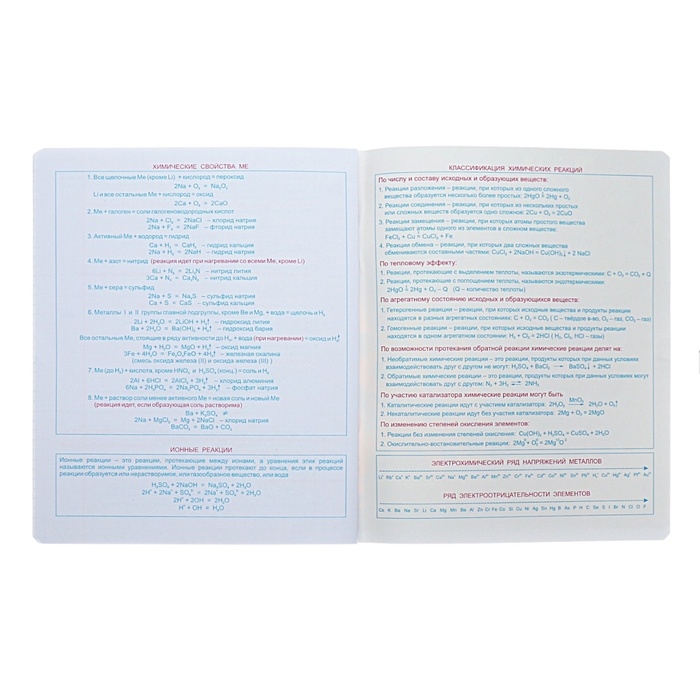 ХИМИЧЕСКИЕ СВОЙСТВА МЕ
1. Все щелочные Ме (кроме Li) + кислород = пероксид
2Na + O₂ = Na₂O₂
Li и все остальные Ме + кислород = оксид
2Ca + O₂ = 2CaO
2. Ме + галоген = соли галогеноводородных кислот
2Na + Cl₂ = 2NaCl – хлорид натрия
2Na + F₂ = 2NaF – фторид натрия
3. Активный Ме + водород = гидрид
Ca + H₂ = CaH₂ – гидрид кальция
2Na + H₂ = 2NaH – гидрид натрия
4. Ме + азот = нитрид (реакция идет при нагревании со всеми Ме, кроме Li)
6Li + N₂ = 2Li₃N – нитрид лития
3Ca + N₂ = Ca₃N₂ – нитрид кальция
5. Ме + сера = сульфид
2Na + S = Na₂S – сульфид натрия
Ca + S = CaS – сульфид кальция
6. Металлы I и II группы главной подгруппы, кроме Be и Mg, + вода = щелочь и H₂
2Li + 2H₂O = 2LiOH + H₂↑ – гидроксид лития
Ba + 2H₂O = Ba(OH)₂ + H₂↑ – гидроксид бария
Все остальные Ме, стоящие в ряду активности до H₂, + вода (при нагревании) = оксид и H₂↑
Mg + H₂O = MgO + H₂↑ – оксид магния
3Fe + 4H₂O = Fe₂O₃FeO + 4H₂↑ – железная окалина
(смесь оксида железа (II) и оксида железа (III) )
7. Ме (до H₂) + кислота, кроме HNO₃ и H₂SO₄ (конц.) = соль и H₂
2Al + 6HCl = 2AlCl₃ + 3H₂↑ – хлорид алюминия
6Na + 2H₃PO₄ = 2Na₃PO₄ + 3H₂↑ – фосфат натрия
8. Ме + раствор соли менее активного Ме = новая соль и новый Ме
(реакция идет, если образующая соль растворима)
Ba + K₂SO₄ ≠
2Na + MgCl₂ = Mg + 2NaCl – хлорид натрия
BaCO₃ = BaO + CO₂
ИОННЫЕ РЕАКЦИИ
Ионные реакции – это реакции, протекающие между ионами, а уравнения этих реакций
называются ионными уравнениями. Ионные реакции протекают до конца, если в процессе
реакции образуется или нерастворимое, или газообразное вещество, или вода
H₂SO₄ + 2NaOH = Na₂SO₄ + 2H₂O
2H⁺ + 2Na⁺ + SO₄²⁻ = 2Na⁺ + SO₄²⁻ + 2H₂O
2H⁺ + 2OH = 2H₂O
H⁺ + OH = H₂O
КЛАССИФИКАЦИЯ ХИМИЧЕСКИХ РЕАКЦИЙ
По числу и составу исходных и образующих веществ:
1. Реакции разложения – реакции, при которых из одного сложного
вещества образуется несколько более простых: 2HgO = 2Hg + O₂
2. Реакции соединения – реакции, при которых из нескольких простых
или сложных веществ образуется одно сложное: 2Cu + O₂ = 2CuO
3. Реакции замещения – реакции, при которых атомы простого вещества
замещают атомы одного из элементов в сложном веществе:
FeCl₂ + Cu = CuCl₂ + Fe
4. Реакции обмена – реакции, при которых два сложных вещества
обмениваются составными частями: CuCl₂ + 2NaOH = Cu(OH)₂↓ + 2 NaCl
По тепловому эффекту:
1. Реакции, протекающие с выделением теплоты, называются экзотермическими: C + O₂ = CO₂ + Q
2. Реакции, протекающие с поглощением теплоты, называются эндотермическими:
2HgO = 2Hg + O₂ – Q (Q – количество теплоты)
По агрегатному состоянию исходных и образующихся веществ:
1. Гетерогенные реакции – реакции, при которых исходные вещества и продукты реакции
находятся в разных агрегатных состояниях: C + O₂ = CO₂ ( C – твёрдое в-во, O₂ – газ, CO₂ – газ)
2. Гомогенные реакции – реакции, при которых исходные вещества и продукты реакции
находятся в одном агрегатном состоянии: H₂ + Cl₂ = 2HCl ( H₂, Cl₂, HCl – газы)
По возможности протекания обратной реакции химические реакции делят на:
1. Необратимые химические реакции – это реакции, продукты которых при данных условиях
взаимодействовать друг с другом не могут: H₂SO₄ + BaCl₂ → BaSO₄↓ + 2HCl
2. Обратимые химические реакции – это реакции, продукты которых при данных условиях могут
взаимодействовать друг с другом: N₂ + 3H₂ ⇄ 2NH₃
По участию катализатора химические реакции могут быть
1. Каталитические реакции идут с участием катализатора: 2H₂O₂ MnO₂→ 2H₂O + O₂↑
2. Некаталитические реакции идут без участия катализатора: 2Mg + O₂ = 2MgO
По изменению степеней окисления элементов:
1. Реакции без изменения степеней окисления: Cu(OH)₂ + H₂SO₄ = CuSO₄ + 2H₂O
2. Окислительно-восстановительные реакции: 2Mg⁰ + O₂⁰ = 2Mg⁺²O⁻²
ЭЛЕКТРОХИМИЧЕСКИЙ РЯД НАПРЯЖЕНИЙ МЕТАЛЛОВ
РЯД ЭЛЕКТРООТРИЦАТЕЛЬНОСТИ ЭЛЕМЕНТОВ
Cs K Ba Na Sr Li Ca Mg Mn Be Al Zn Cr Fe Co Si Cu Ni Ag Sn Hg B As P H C Se S I Br N Cl O F